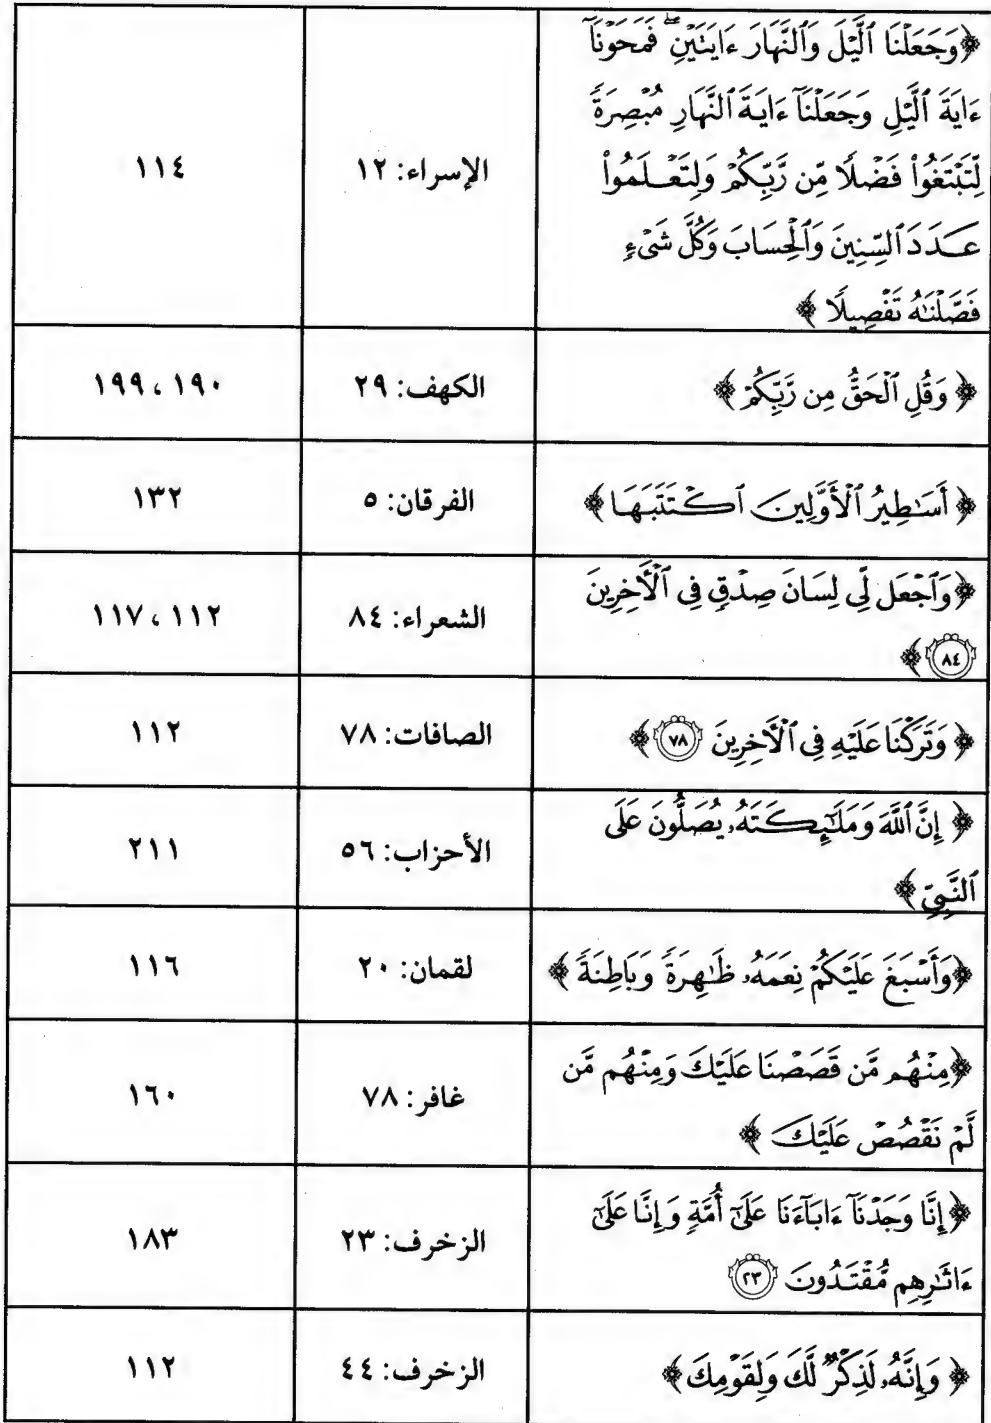 ﴿وَجَعَلْنَا ٱلَّيْلَ وَٱلنَّهَارَ ءَايَتَيْنِ ۖ فَمَحَوْنَآ
ءَايَةَ ٱلَّيْلِ وَجَعَلْنَآ ءَايَةَ ٱلنَّهَارِ مُبْصِرَةً
لِّتَبْتَغُوا۟ فَضْلًا مِّن رَّبِّكُمْ وَلِتَعْلَمُوا۟
عَدَدَ ٱلسِّنِينَ وَٱلْحِسَابَ وَكُلَّ شَىْءٍ
فَصَّلْنَـٰهُ تَفْصِيلًا ﴾
الإسراء: ١٢
١١٤
﴿ وَقُلِ ٱلْحَقُّ مِن رَّبِّكُمْ ﴾
الكهف: ٢٩
١٩٠، ١٩٩
﴿ أَسَـٰطِيرُ ٱلْأَوَّلِينَ ٱكْتَتَبَهَا ﴾
الفرقان: ٥
١٣٢
﴿وَٱجْعَل لِّى لِسَانَ صِدْقٍ فِى ٱلْـَٔاخِرِينَ
٨٤ ﴾
الشعراء: ٨٤
١١٢، ١١٧
﴿ وَتَرَكْنَا عَلَيْهِ فِى ٱلْـَٔاخِرِينَ ٧٨ ﴾
الصافات: ٧٨
١١٢
﴿ إِنَّ ٱللَّهَ وَمَلَـٰٓئِكَتَهُۥ يُصَلُّونَ عَلَى
ٱلنَّبِىِّ ﴾
الأحزاب: ٥٦
٢١١
﴿وَأَسْبَغَ عَلَيْكُمْ نِعَمَهُۥ ظَـٰهِرَةً وَبَاطِنَةً ﴾
لقمان: ٢٠
١١٦
﴿مِنْهُم مَّن قَصَصْنَا عَلَيْكَ وَمِنْهُم مَّن
لَّمْ نَقْصُصْ عَلَيْكَ ﴾
غافر: ٧٨
١٦٠
﴿إِنَّا وَجَدْنَآ ءَابَآءَنَا عَلَىٰٓ أُمَّةٍ وَإِنَّا عَلَىٰٓ
ءَاثَـٰرِهِم مُّقْتَدُونَ ٢٣
الزخرف: ٢٣
١٨٣
﴿ وَإِنَّهُۥ لَذِكْرٌ لَّكَ وَلِقَوْمِكَ ﴾
الزخرف: ٤٤
١١٢